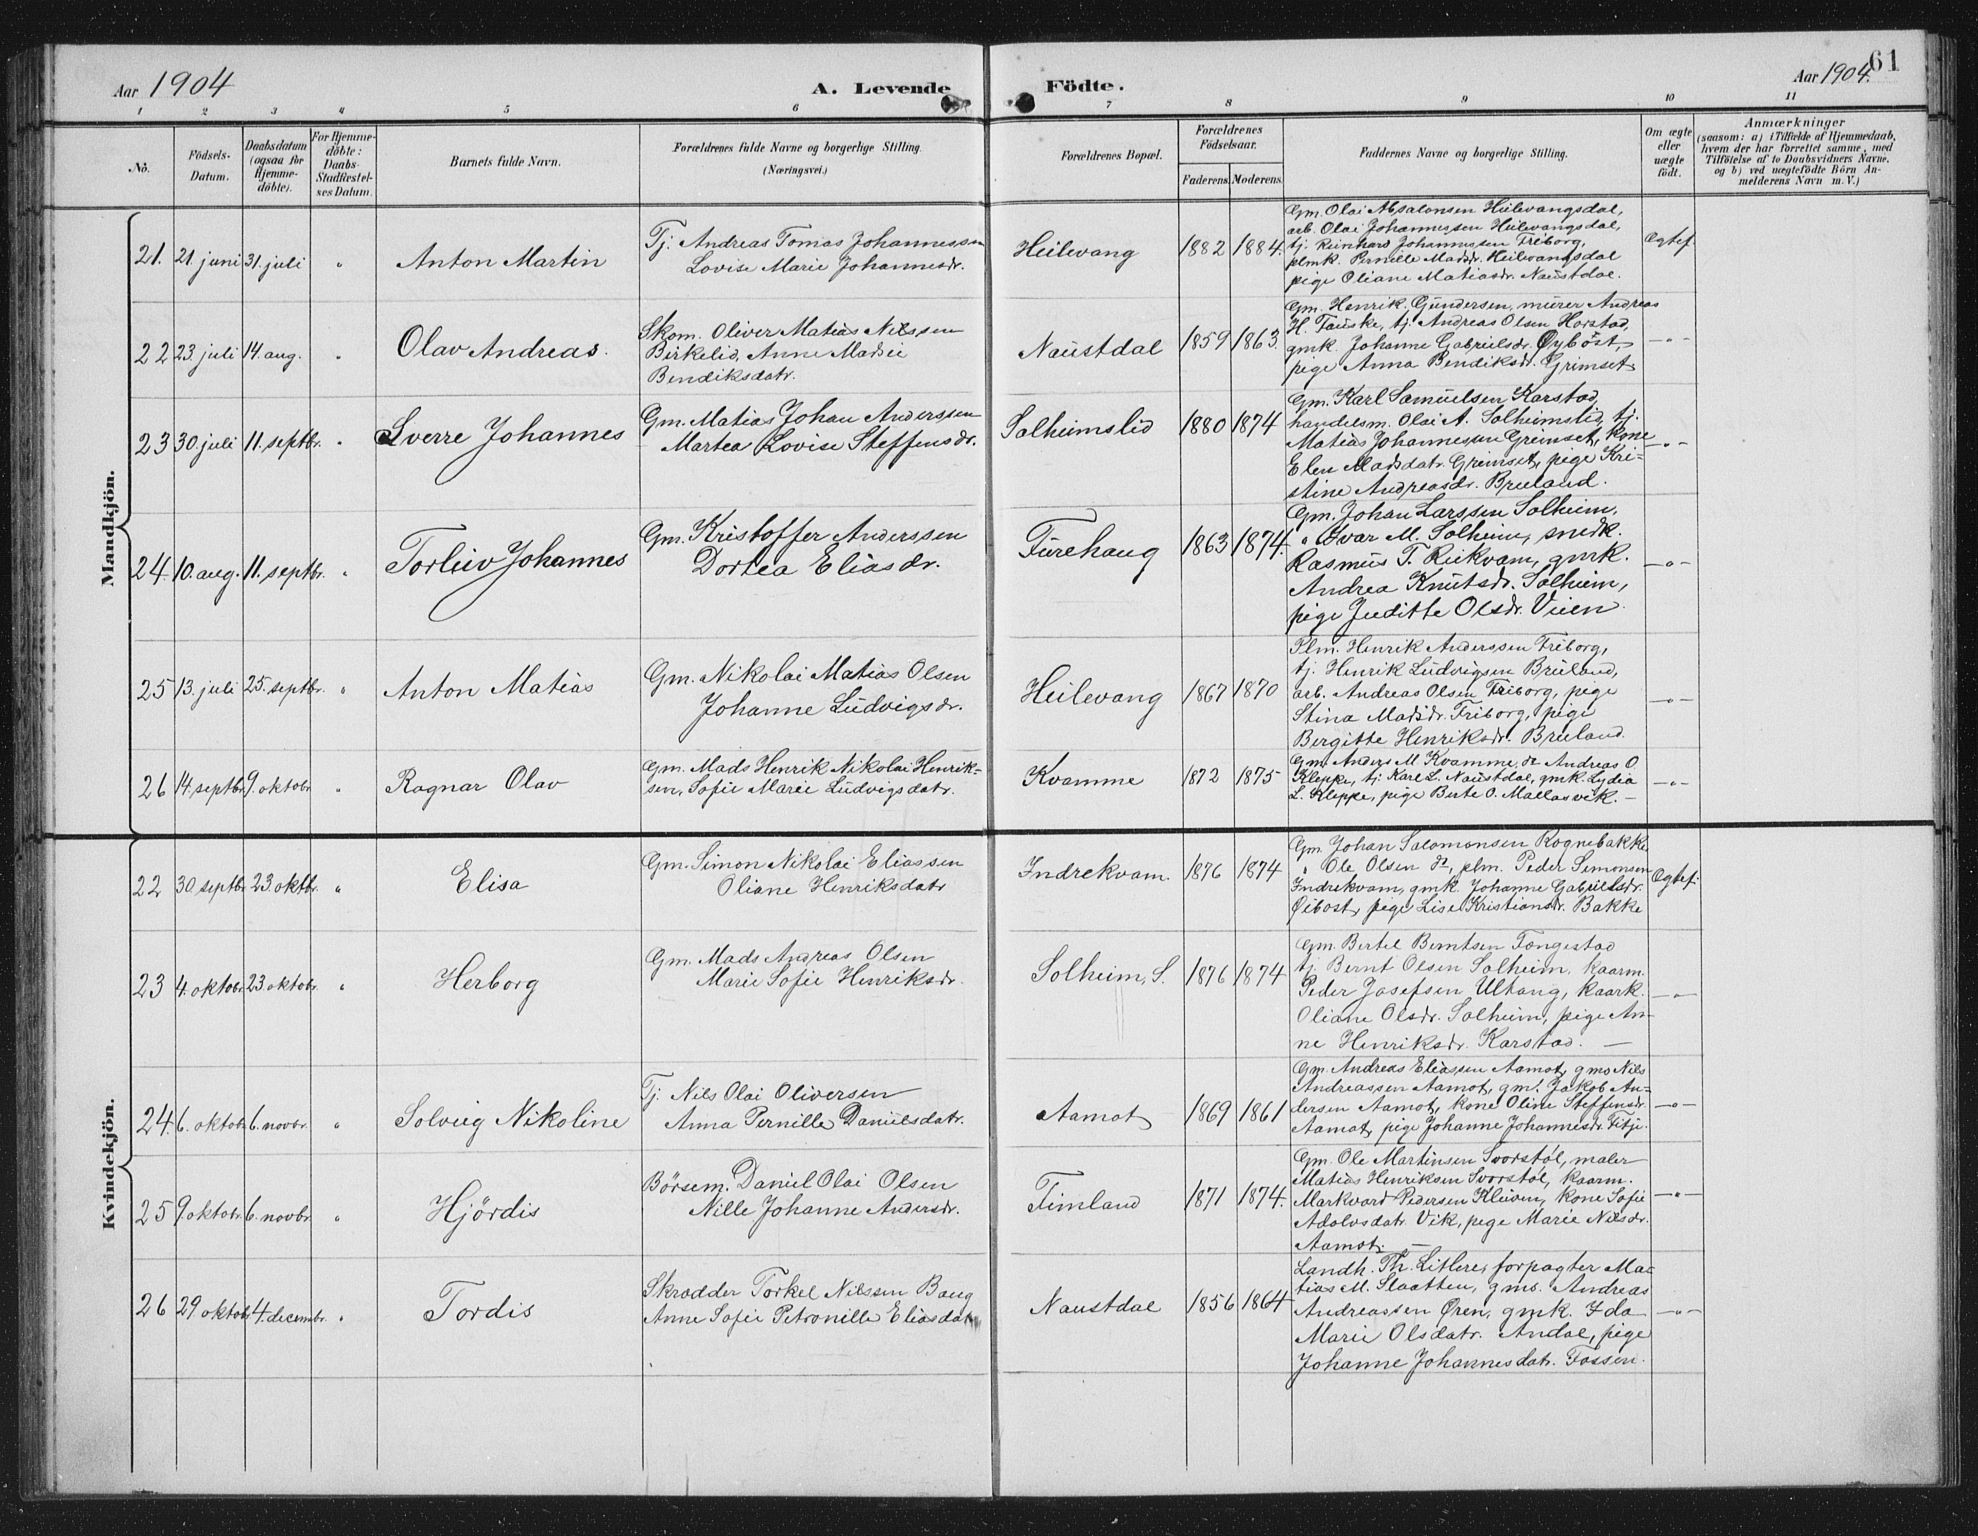 Aar 1904
A. Levende
Födte.
Aar 1904.
61
1 2 3 4 5 6 7 8 9 10 11
No.
Födsels-
Datum.
Daabsdatum
(ogsaa for
Hjemme-
döbte).
For Hjemme-
döbte:
Daabs-
Stadfæstel-
ses Datum.
Barnets fulde Navn.
Forældrenes fulde Navne og borgerlige Stilling.
(Næringsvei.)
Forældrenes Bopæl.
Forældrenes
Födselsaar.
Faderens.
Moderens.
Faddernes Navne og borgerlige Stilling.
Om ægte
eller
uægte
födt.
Anmærkninger
(saasom: a) i Tilfælde af Hjemmedaab,
hvem der har forrettet samme, med
Tilföielse af to Daabsvidners Navne,
og b) ved uægtefödte Börn An-
melderens Navn m. V.)
Mandkjön.
21. 21. juni 31. juli " Anton Martin
Tj. Andreas Tomas Johannessen
Lovise Marie Johannesdr.
Heilevang 1882 1884.
Gm. Olai Absalonsen Heilevangsdal,
arb. Olai Johannessen Heilevangsdal,
tj. Reinhard Johannessen Friborg,
plmk. Pernille Madsdr. Heilevangsdal
pige Oliane Matiasdr. Naustdal.
Ægtef.
22 23. juli 14. aug. " Olav Andreas.
Skom. Oliver Matias Nilssen
Birkelid, Anne Madsie
Bendiksdatr.
Naustdal 1859 1863.
Gm. Henrik Gundersen, murer Andreas
H. Fauske, tj. Andreas Olsen Horstad,
gmk. Johanne Gabrielsdr. Øyböst,
pige Anna Bendiksdr. Grimset
—"—
23 30. juli 11. septbr. " Sverre Johannes
Gm. Matias Johan Anderssen
Martea Lovise Steffensdr.
Solheimslid 1880 1874
Gm. Karl Samuelsen Karstad,
handelsm. Olai A. Solheimslid, tj.
Matias Johannessen Grimset, kone
Elen Madsdatr. Grimset, pige Kri-
stine Andreasdr. Bruland.
—"—
24. 10. aug. 11. septbr. " Torleiv Johannes
Gm. Kristoffer Anderssen
Dortea Eliasdr.
Furehaug 1863 1874.
Gm. Johan Larssen Solheim,
" Ivar M. Solheim, snedk.
Rasmus T. Reikvam, gmk.
Andrea Knutsdr. Solheim,
pige Juditte Olsdr. Vieen.
—"—
25 13. juli 25. septbr. " Anton Matias
Gm. Nikolai Matias Olsen
Johanne Ludvigsdr.
Heilevang 1867 1870
Plm. Henrik Anderssen Friborg,
tj. Henrik Ludvigsen Bruland,
arb. Andreas Olsen Friborg, pige
Stina Madsdr. Friborg, pige
Bergitte Henriksdr. Bruland.
—"—
26 14. septbr. 9. oktobr. " Ragnar Olav
Gm. Mads Henrik Nikolai Henrik-
sen, Sofie Marie Ludvigsdatr.
Kvamme 1872 1875
Gm. Anders M Kvamme, do Andreas O
Kleppe, tj. Karl L. Naustdal, gmk. Lydia
L. Kleppe, pige Berte O. Mallasvik. —
—"—
Kvindekjön.
22 30. septbr. 23. oktbr. " Elisa
Gm. Simon Nikolai Eliassen
Oliane Henriksdatr
Indrekvam. 1876 1874
Gm. Johan Salomonsen Rognebakke
" Ole Olsen do, plm. Peder Simonsen
Indrekvam, gmk. Johanne Gabrielsdr.
Øibost, pige Lise Kristiansdr. Bakke
Ægtef.
23 4. oktobr. 23. oktobr. " Herborg
Gm. Mads Andreas Olsen
Marie Sofie Henriksdr.
Solheim, S. 1876 1874.
Gm. Bertel Berntsen Tængestad
tj. Bernt Olsen Solheim, kaarm.
Peder Josefsen Ultang, kaark.
Oliane Olsdr. Solheim, pige An-
ne Henriksdr. Karstad. —
—"—
24. 6. oktobr. 6. novbr. " Solveig Nikoline
Tj. Nils Olai Oliversen
Anna Pernille Danielsdatr.
Aamot 1869 1861
Gm. Andreas Eliassen Aamot, gms Nils
Andreassen Aamot, gm. Jakob An-
dersen Aamot, kone Oline Steffensdr.
Aamot, pige Johanne Johannesdr. Fitje.
—"—
25 9. oktobr. 6. novbr. " Hjördis
Börsem. Daniel Olai Olsen
Nille Johanne Andersdr.
Fimland 1871 1874.
Gm. Ole Martinsen Svorstøl, maler
Matias Henriksen Svorstøl, kaarm.
Markvard Pedersen Kleiven, kone Sofie
Adolvsdatr. Vik, pige Marie Nilsdr.
Aamot. —
—"—
26 29 oktobr. 4. decembr. " Tordis
Skrædder Torkel Nilssen Boug
Anne Sofie Petronille Eliasdatr
Naustdal 1856 1864
Landh. Th. Litlere, forpagter Ma-
tias M. Slaatten, gms. Andreas
Andreassen Øren, gmk. Ida
Marie Olsdatr. Andal, pige
Johanne Johannesdatr. Fossen.
—"—